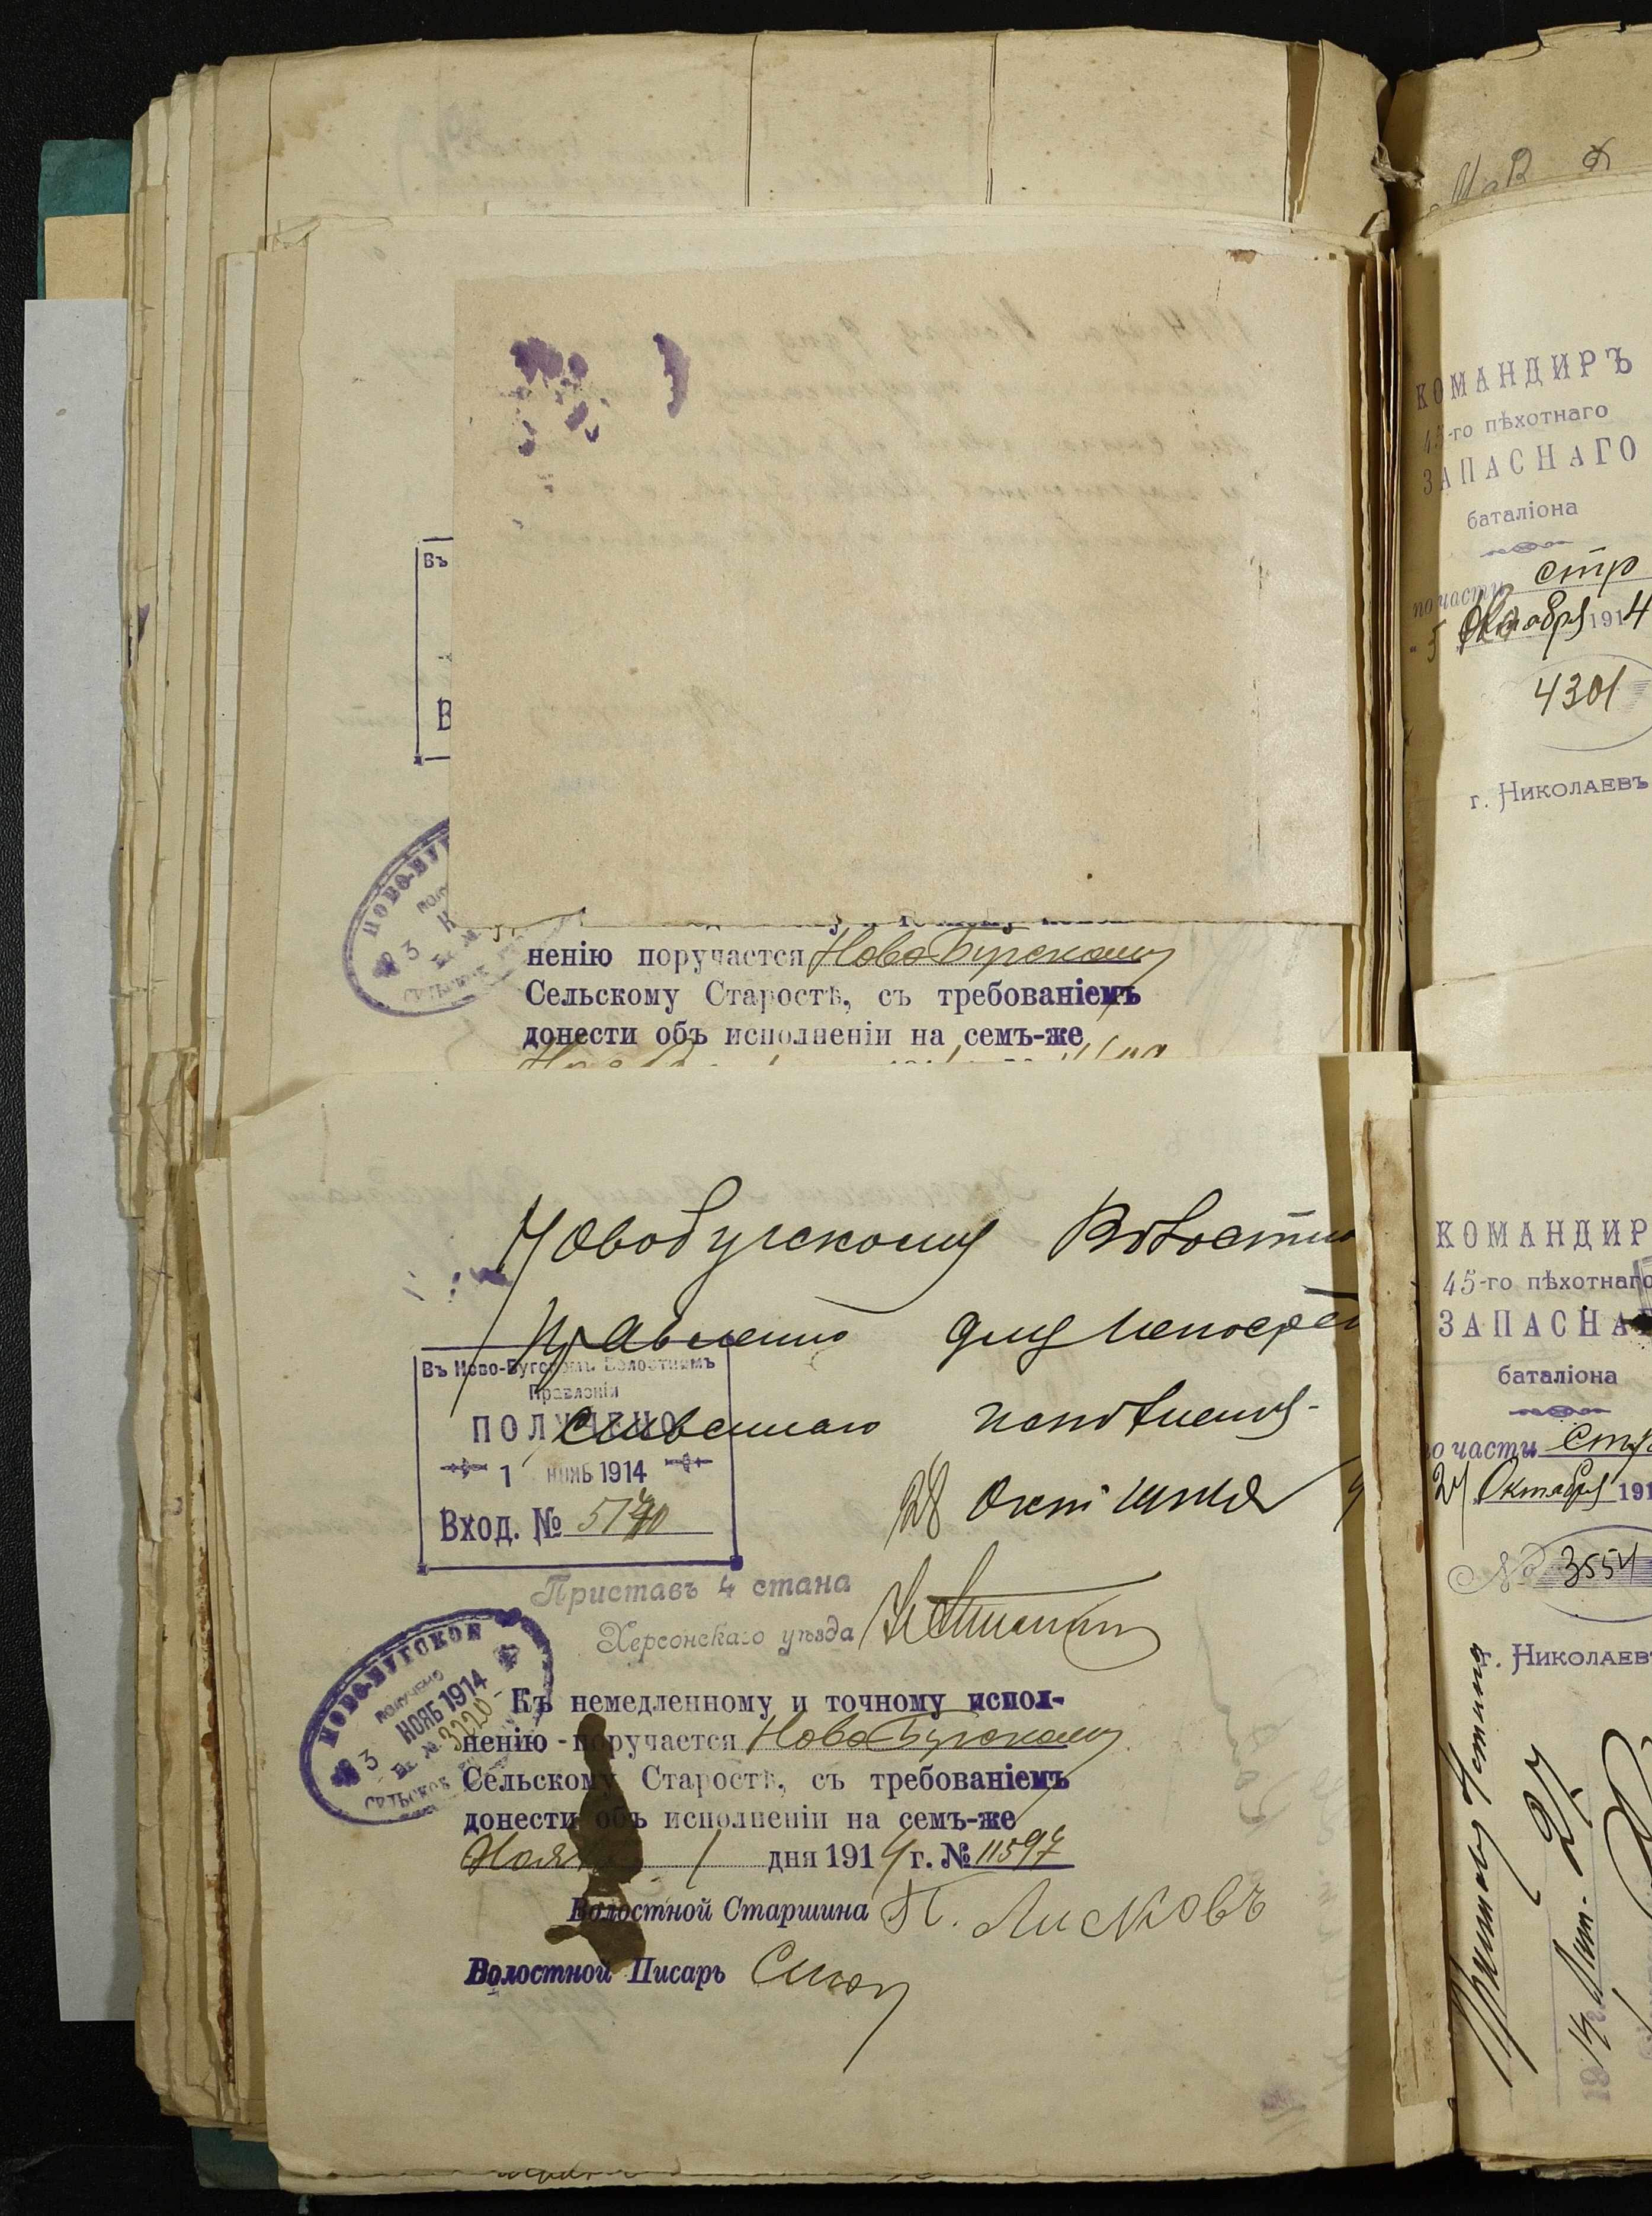 Въ
В
НОВО-БУГ
3
нению поручается НовоБугскому
Сельскому Старостѣ, съ требованіемъ
донести объ исполненіи на семъ-же
Новобугскому Волостно
Правленію для непосред
ственнаго исполненія-
28 Окт
Въ Ново-Бугскомъ Волостномъ
Правленіи
ПОЛУЧЕНО
1 НОЯБ 1914
Вход. № 5740
Приставъ 4 стана
Херсонскаго уѣзда
НОВО-БУГСКОЕ
ПОЛУЧЕНО
3 НОЯБ 1914
Вх. № 3220
СЕЛЬСКОЕ
Къ немедленному и точному испол-
ненію поручается НовоБугскому
Сельскому Старостѣ, съ требованіемъ
донести объ исполненіи на семъ-же
Нояб 1 дня 1914 г. № 11597
Волостной Старшина П. Лисковъ
Волостной Писарь
КОМАНДИРЪ
45-го пѣхотнаго
ЗАПАСНАГО
баталіона
по части стр
5 Октября 1914
4301
г. НИКОЛАЕВЪ
КОМАНДИР
45-го пѣхотнаго
ЗАПАСНАГ
баталіона
о части стр
24 Октября 191
№ 3554
г. НИКОЛАЕВ